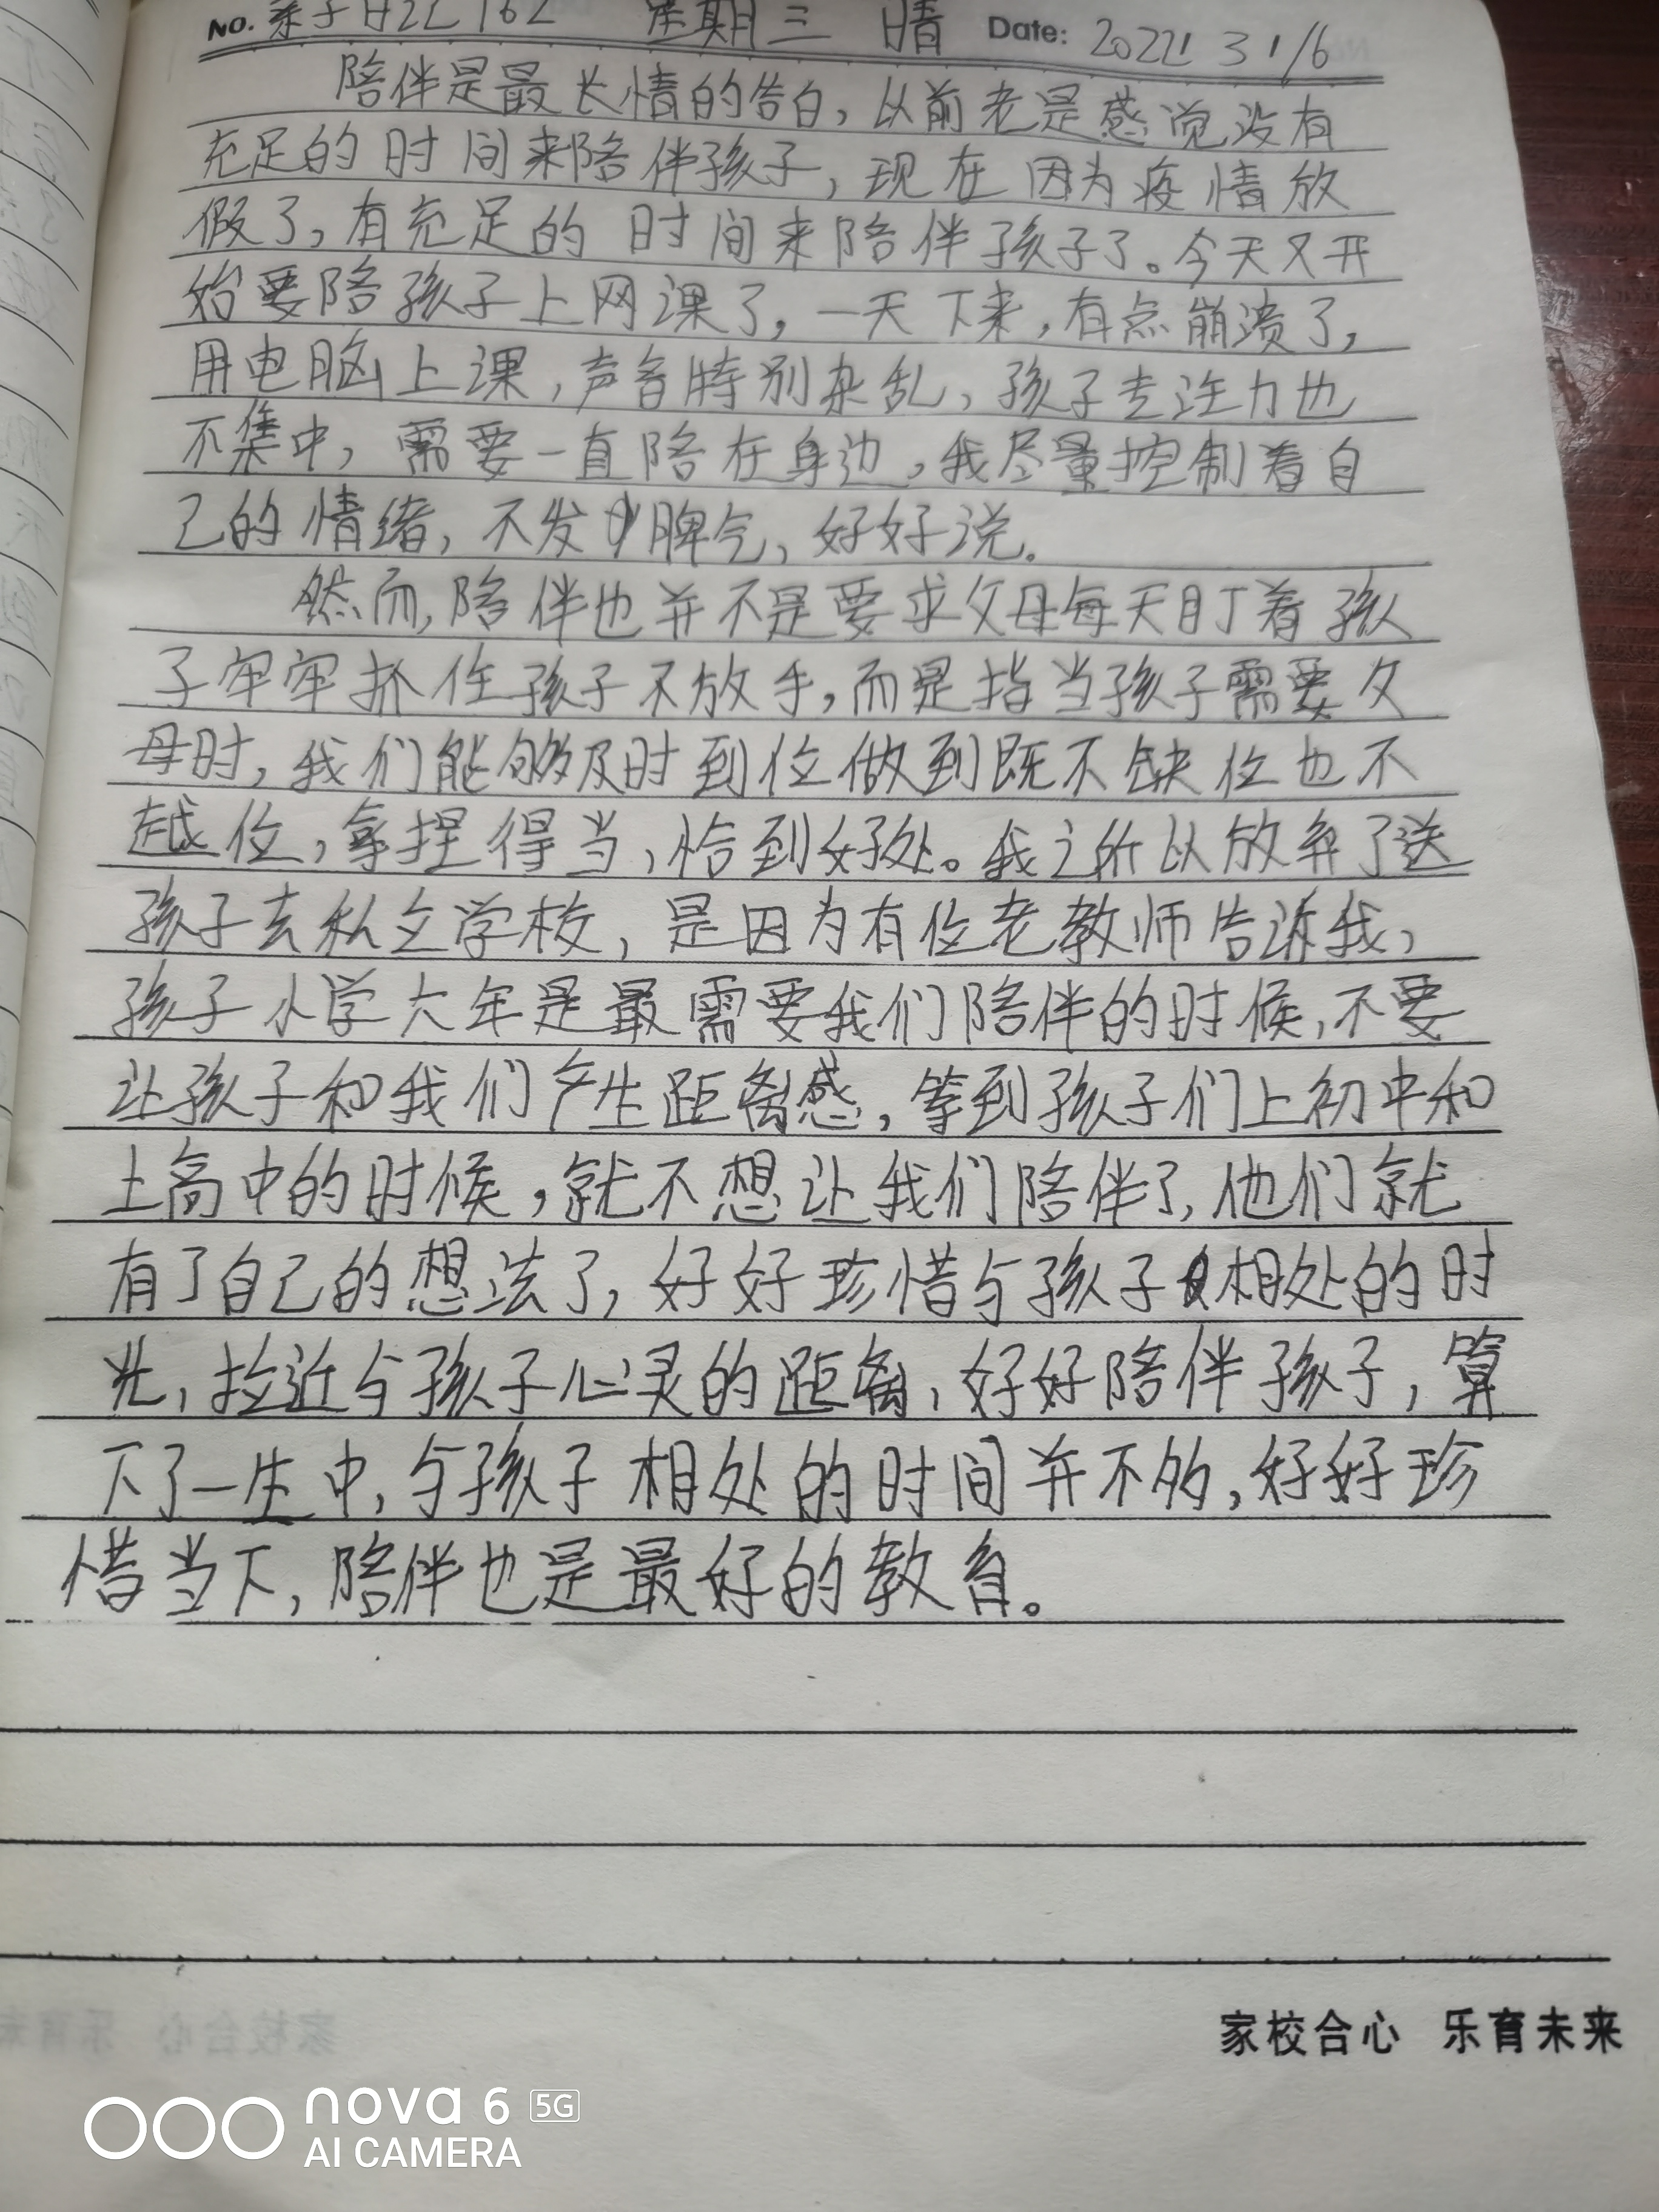 No. 亲子日记 162 星期三 晴 Date: 2022 3 1/6
陪伴是最长情的告白，以前老是感觉没有
充足的时间来陪伴孩子，现在因为疫情放
假了，有充足的时间来陪伴孩子了。今天又开
始要陪孩子上网课了，一天下来，有点崩溃了，
用电脑上课，声音特别杂乱，孩子专注力也
不集中，需要一直陪在身边，我尽量控制着自
己的情绪，不发脾气，好好说。
然而，陪伴也并不是要求父母每天盯着孩
子牢牢抓住孩子不放手，而是指当孩子需要父
母时，我们能够及时到位做到既不缺位也不
越位，拿捏得当，恰到好处。我之所以放弃了送
孩子去私立学校，是因为有位老教师告诉我，
孩子小学六年是最需要我们陪伴的时候，不要
让孩子和我们产生距离感，等到孩子们上初中和
上高中的时候，就不想让我们陪伴了，他们就
有了自己的想法了，好好珍惜与孩子相处的时
光，拉近与孩子心灵的距离，好好陪伴孩子，算
下了一生中，与孩子相处的时间并不多，好好珍
惜当下，陪伴也是最好的教育。
家校合心 乐育未来
nova 6 5G
AI CAMERA